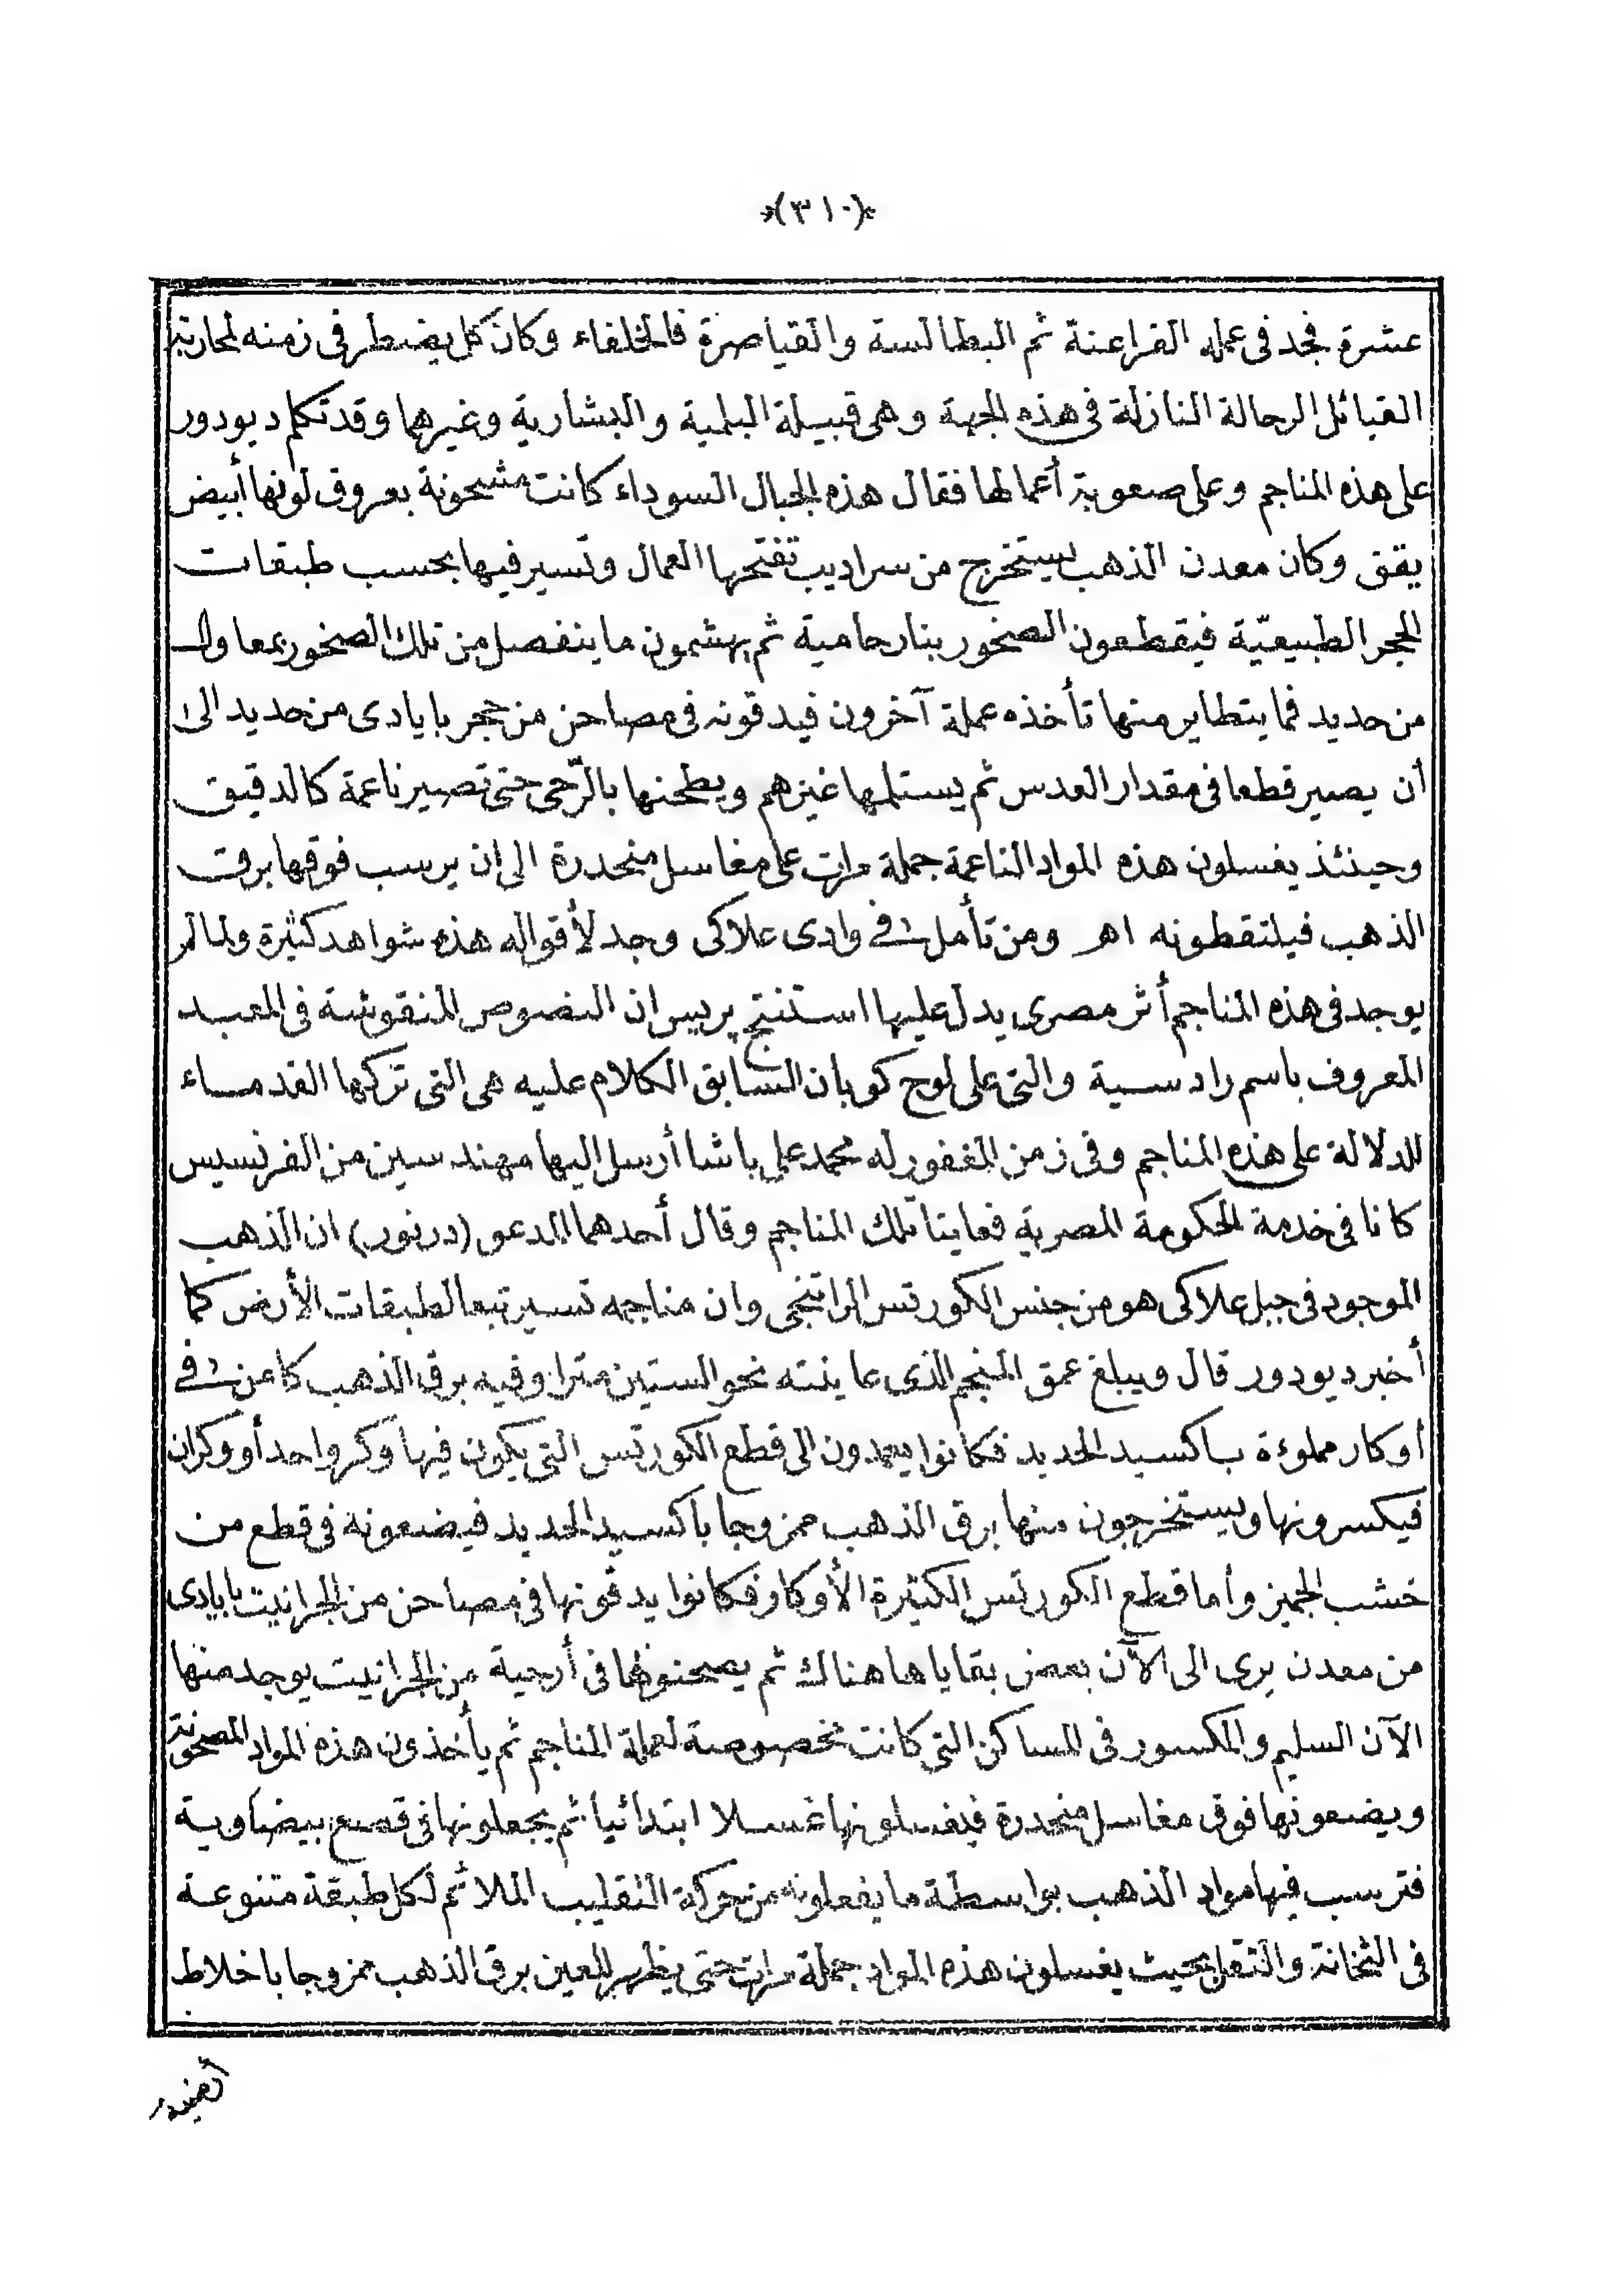 (٣١٠)
عشرة فجد في عمله الفراعنة ثم البطالسة والقياصرة فالخلفاء وكان كل يضطر في زمنه لمحاربة
القبائل الرحالة النازلة في هذه الجهة وهي قبيلة البلمية والبشارية وغيرهما وقد تكلم ديودور
على هذه المناجم وعلى صعوبة أعمالها فقال هذه الجبال السوداء كانت مشحونة بعروق لونها أبيض
يقق وكان معدن الذهب يستخرج من سراديب تفتحها العمال وتسير فيها بحسب طبقات
الحجر الطبيعيّة فيقطعون الصخور بنار حامية ثم يهشمون ما ينفصل من تلك الصخور بمعاول
من حديد فما يتطاير منها تأخذه عملة آخرون فيدقونه في مصاحن من حجر بايادى من حديد الى
أن يصير قطعا في مقدار العدس ثم يستلمها غيرهم ويطحنها بالرّحى حتى تصير ناعمة كالدقيق
وحينئذ يغسلون هذه المواد الناعمة جملة مرات على مغاسل منحدرة الى ان يرسب فوقها برقت
الذهب فيلتقطونه اهـ ومن تأمل في وادى علاكى وجد لأقواله هذه شواهد كثيرة ولما لم
يوجد في هذه المناجم أثر مصرى يدل عليها استنتج بريس ان النصوص المنقوشة في المعبد
المعروف باسم رادسية والتى على لوح كوبان السابق الكلام عليه هى التى تركها القدماء
للدلالة على هذه المناجم وفي زمن المغفور له محمد على باشا أرسل اليها مهندسين من الفرنسيس
كانا في خدمة الحكومة المصرية فعاينا تلك المناجم وقال أحدهما المدعو (درنور) ان الذهب
الموجود في جبل علاكى هو من جنس الكورتس الراتنجى وان مناجمه تسير تبعا لطبقات الأرض كما
أخبر ديودور قال ويبلغ عمق المنجم الذى عاينته نحو الستين مترا وفيه برق الذهب كامن في
أوكار مملوءة باكسيد الحديد فكانوا يعمدون الى قطع الكورتس التى يكون فيها وكر واحد أو وكران
فيكسرونها ويستخرجون منها برق الذهب ممزوجا باكسيد الحديد فيضعونه في قطع من
خشب الجميز وأما قطع الكورتس الكثيرة الأوكار فكانوا يدقونها في مصاحن من الجرانيت بايادى
من معدن يرى الى الآن بعض بقاياها هناك ثم يصحنونها في أرحية من الجرانيت يوجد منها
الآن السليم والمكسور في المساكن التى كانت مخصوصة لعملة المناجم ثم يأخذون هذه المواد المصحونة
ويضعونها فوق مغاسل منحدرة فيغسلونها غسلا ابتدائيا ثم يجعلونها في قصع بيضاوية
فترسب فيها مواد الذهب بواسطة ما يفعلونه من حركة التقليب الملائم لكل طبقة متنوعة
في الثخانة والثقل بحيث يغسلون هذه المواد جملة مرات حتى يظهر للعين برق الذهب ممزوجا باخلاط